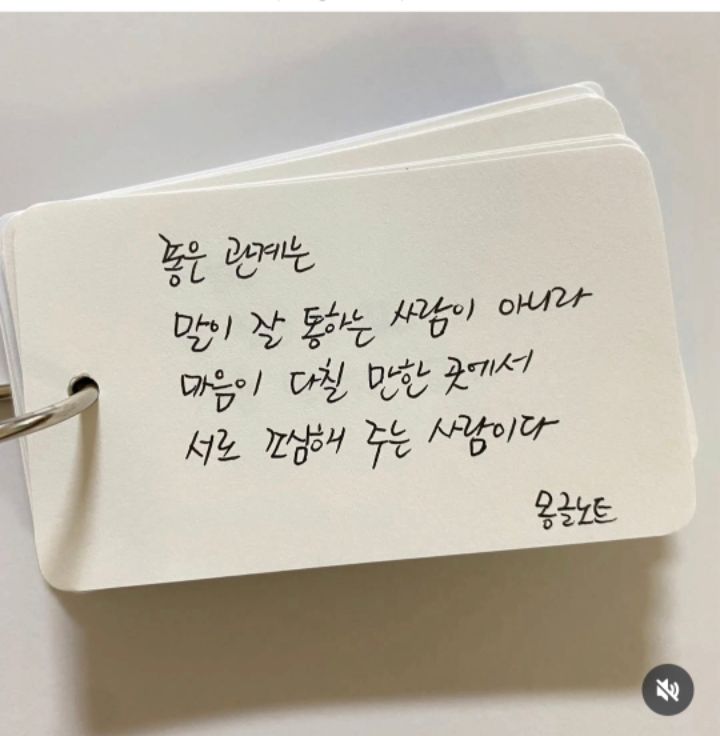 좋은 관계는
말이 잘 통하는 사람이 아니라
마음이 다칠 만한 곳에서
서로 조심해 주는 사람이다
몽글노트